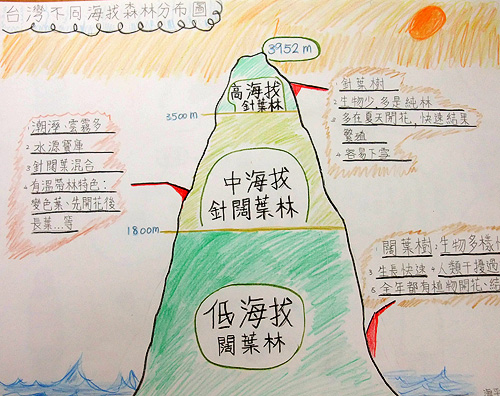 台灣不同海拔森林分布圖
3952m
高海拔
針葉林
3500m
1.針葉樹
2.生物少,多是純林
3.多在夏天開花,快速結果
繁殖
4.容易下雪
1.潮溼、雲霧多
2.水源寶庫
3.針闊葉混合
4.有溫帶林特色:
變色葉、先開花後
長葉…等
中海拔
針闊葉林
1800m
1.闊葉樹 2.生物多樣
3.生長快速 4.人類干擾過
5.全年都有植物開花、結
低海拔
闊葉林